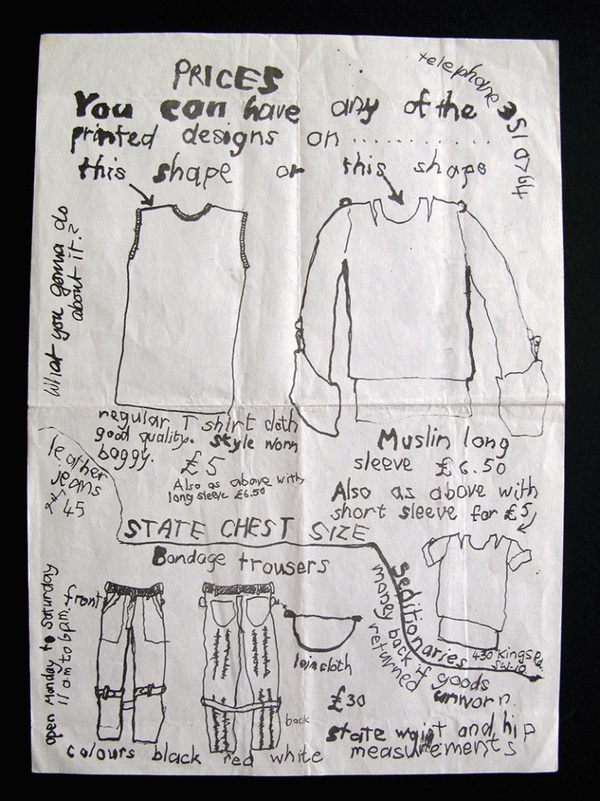 PRICES
telephone 351 0764
You can have any of the
printed designs on ............
this shape or this shape
What you gonna do
about it?
regular T shirt cloth
good quality. style worn
baggy.
£5
Also as above with
long sleeve £6.50
Muslin long
sleeve £6.50
Also as above with
short sleeve for £5
leather
jeans
45
STATE CHEST SIZE
Bondage trousers
front
loincloth
back
£30
Seditionaries 430 Kings Rd.
SW.10
money back if goods
returned unworn.
open Monday to Saturday
11am to 6pm.
state waist and hip
measurements
colours black red white